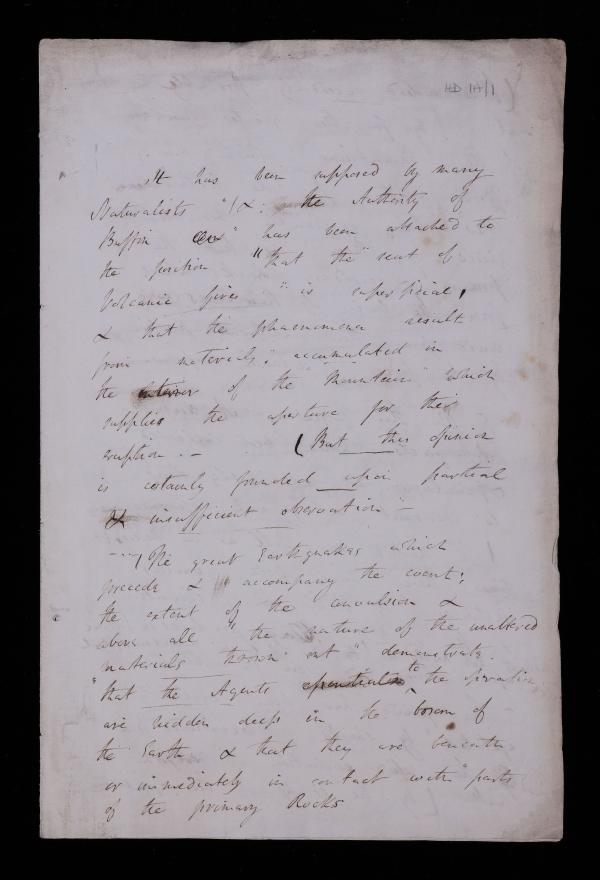 HD 14/1
It has been supposed by many
Naturalists "/& : the Authority of
Buffon " has been attached to
the position "that the" seat of
Volcanic fires " is superficial,
& that the phaenomena result
from materials, accumulated in
the interior of the "Mountain" which
supplies the aperture for their
eruption. –    (But this opinion
is certainly founded upon partial
& insufficient observation" –
– (The great Earthquakes which
precede & accompany the event;
the extent of the convulsion &
above all "the nature of the unaltered
materials thrown out" demonstrate.
"that the Agents essential to the operation,
are hidden deep in the bosom of
the Earth & that they are beneath
or immediately in contact with "parts
of the primary Rocks